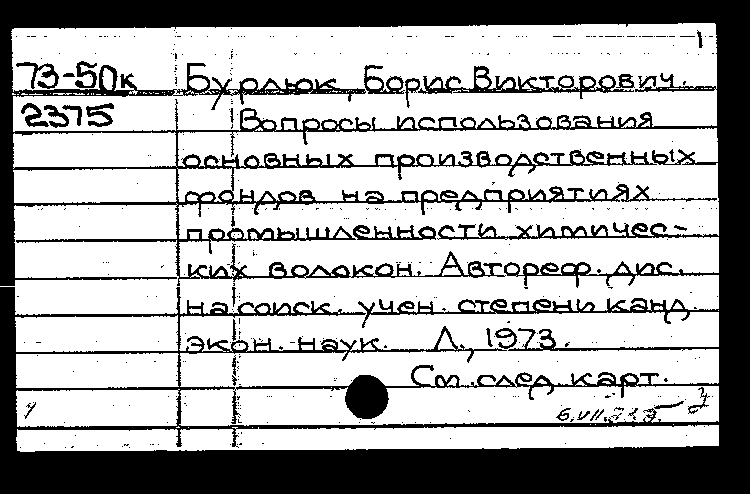 1
73-50к Бурлюк, Борис Викторович.
2375 Вопросы использования
основных производственных
фондов на предприятиях
промышленности химичес-
ких волокон. Автореф. дис.
на соиск. учен. степени канд.
экон. наук. Л., 1973.
См. след. карт.